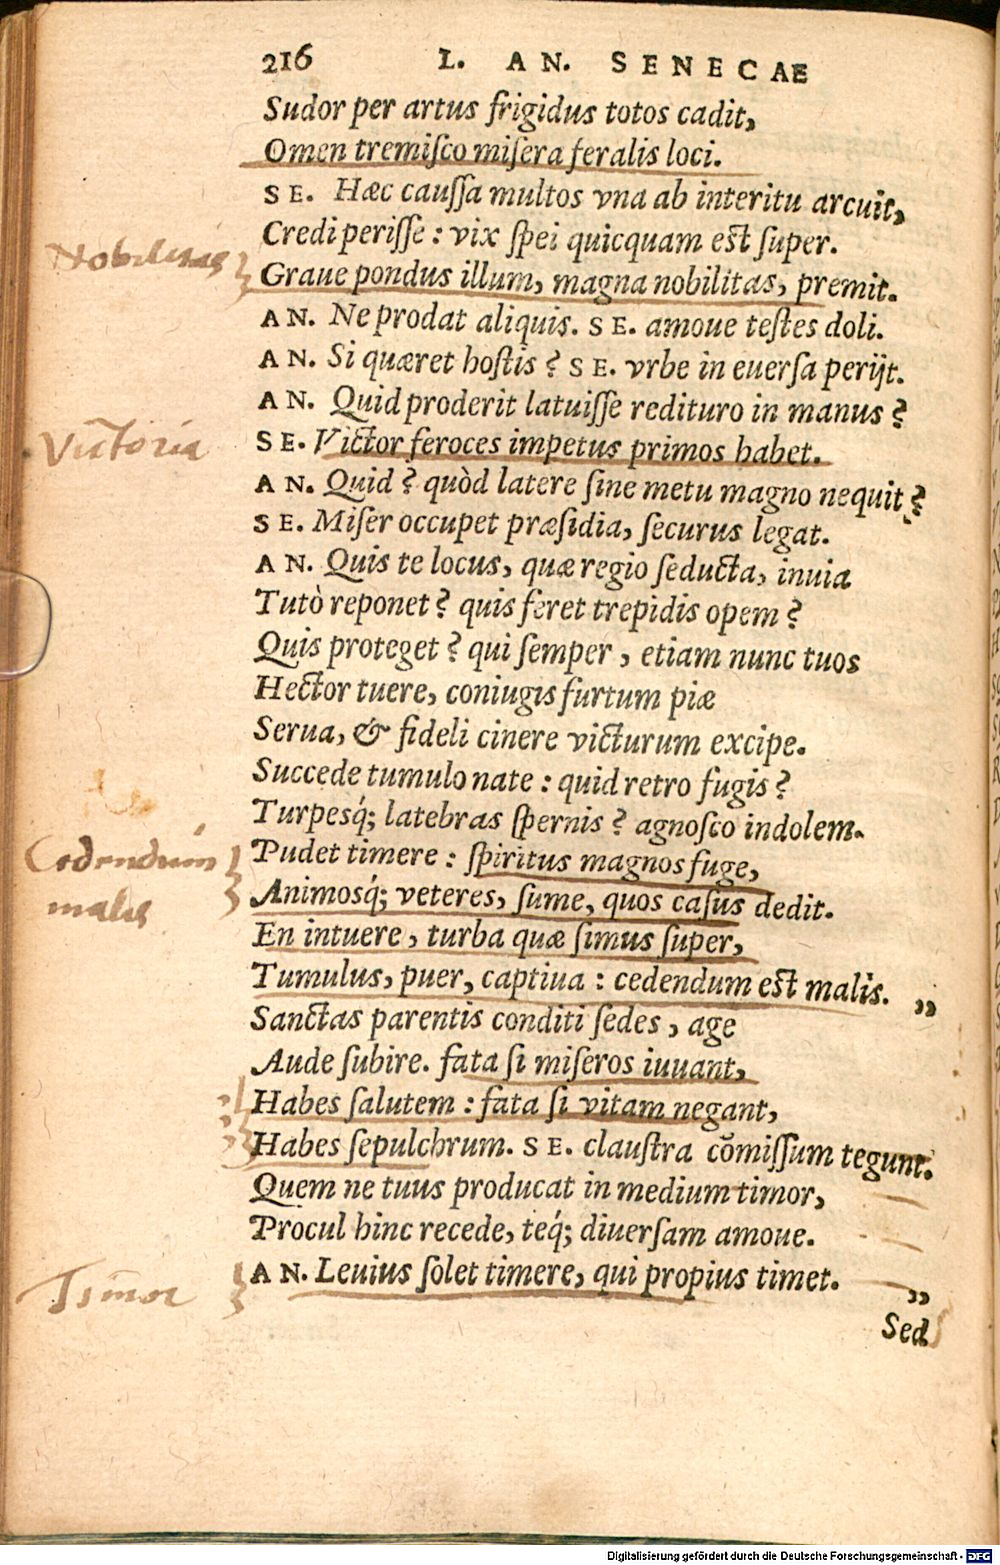 216 L. AN. SENECAE
Sudor per artus frigidus totos cadit,
Omen tremiſco miſera feralis loci.
SE. Hæc cauſſa multos vna ab interitu arcuit,
Credi periſſe : vix ſpei quicquam est ſuper.
Nobilitas
Graue pondus illum, magna nobilitas, premit.
AN. Ne prodat aliquis. SE. amoue teſtes doli.
AN. Si quæret hoſtis ? SE. vrbe in euerſa perijt.
AN. Quid proderit latuiſſe redituro in manus ?
Victoria
SE. Victor feroces impetus primos habet.
AN. Quid ? quòd latere ſine metu magno nequit ?
SE. Miſer occupet præſidia, ſecurus legat.
AN. Quis te locus, quæ regio ſeducta, inuia
Tutò reponet ? quis feret trepidis opem ?
Quis proteget ? qui ſemper, etiam nunc tuos
Hector tuere, coniugis furtum piæ
Serua, & fideli cinere victurum excipe.
Succede tumulo nate : quid retro fugis ?
Turpesq́; latebras ſpernis ? agnoſco indolem.
Cedendum
malis
Pudet timere : ſpiritus magnos fuge,
Animosq́; veteres, ſume, quos caſus dedit.
En intuere, turba quæ ſimus ſuper,
Tumulus, puer, captiua : cedendum est malis. ,,
Sanctas parentis conditi ſedes, age
Aude ſubire. fata ſi miſeros iuuant,
Habes ſalutem : fata ſi vitam negant,
Habes ſepulchrum. SE. clauſtra cōmiſſum tegunt.
Quem ne tuus producat in medium timor,
Procul hinc recede, teq́; diuerſam amoue.
Timor
AN. Leuius ſolet timere, qui propius timet. ,,
Sed
Digitalisierung gefördert durch die Deutsche Forschungsgemeinschaft - DFG